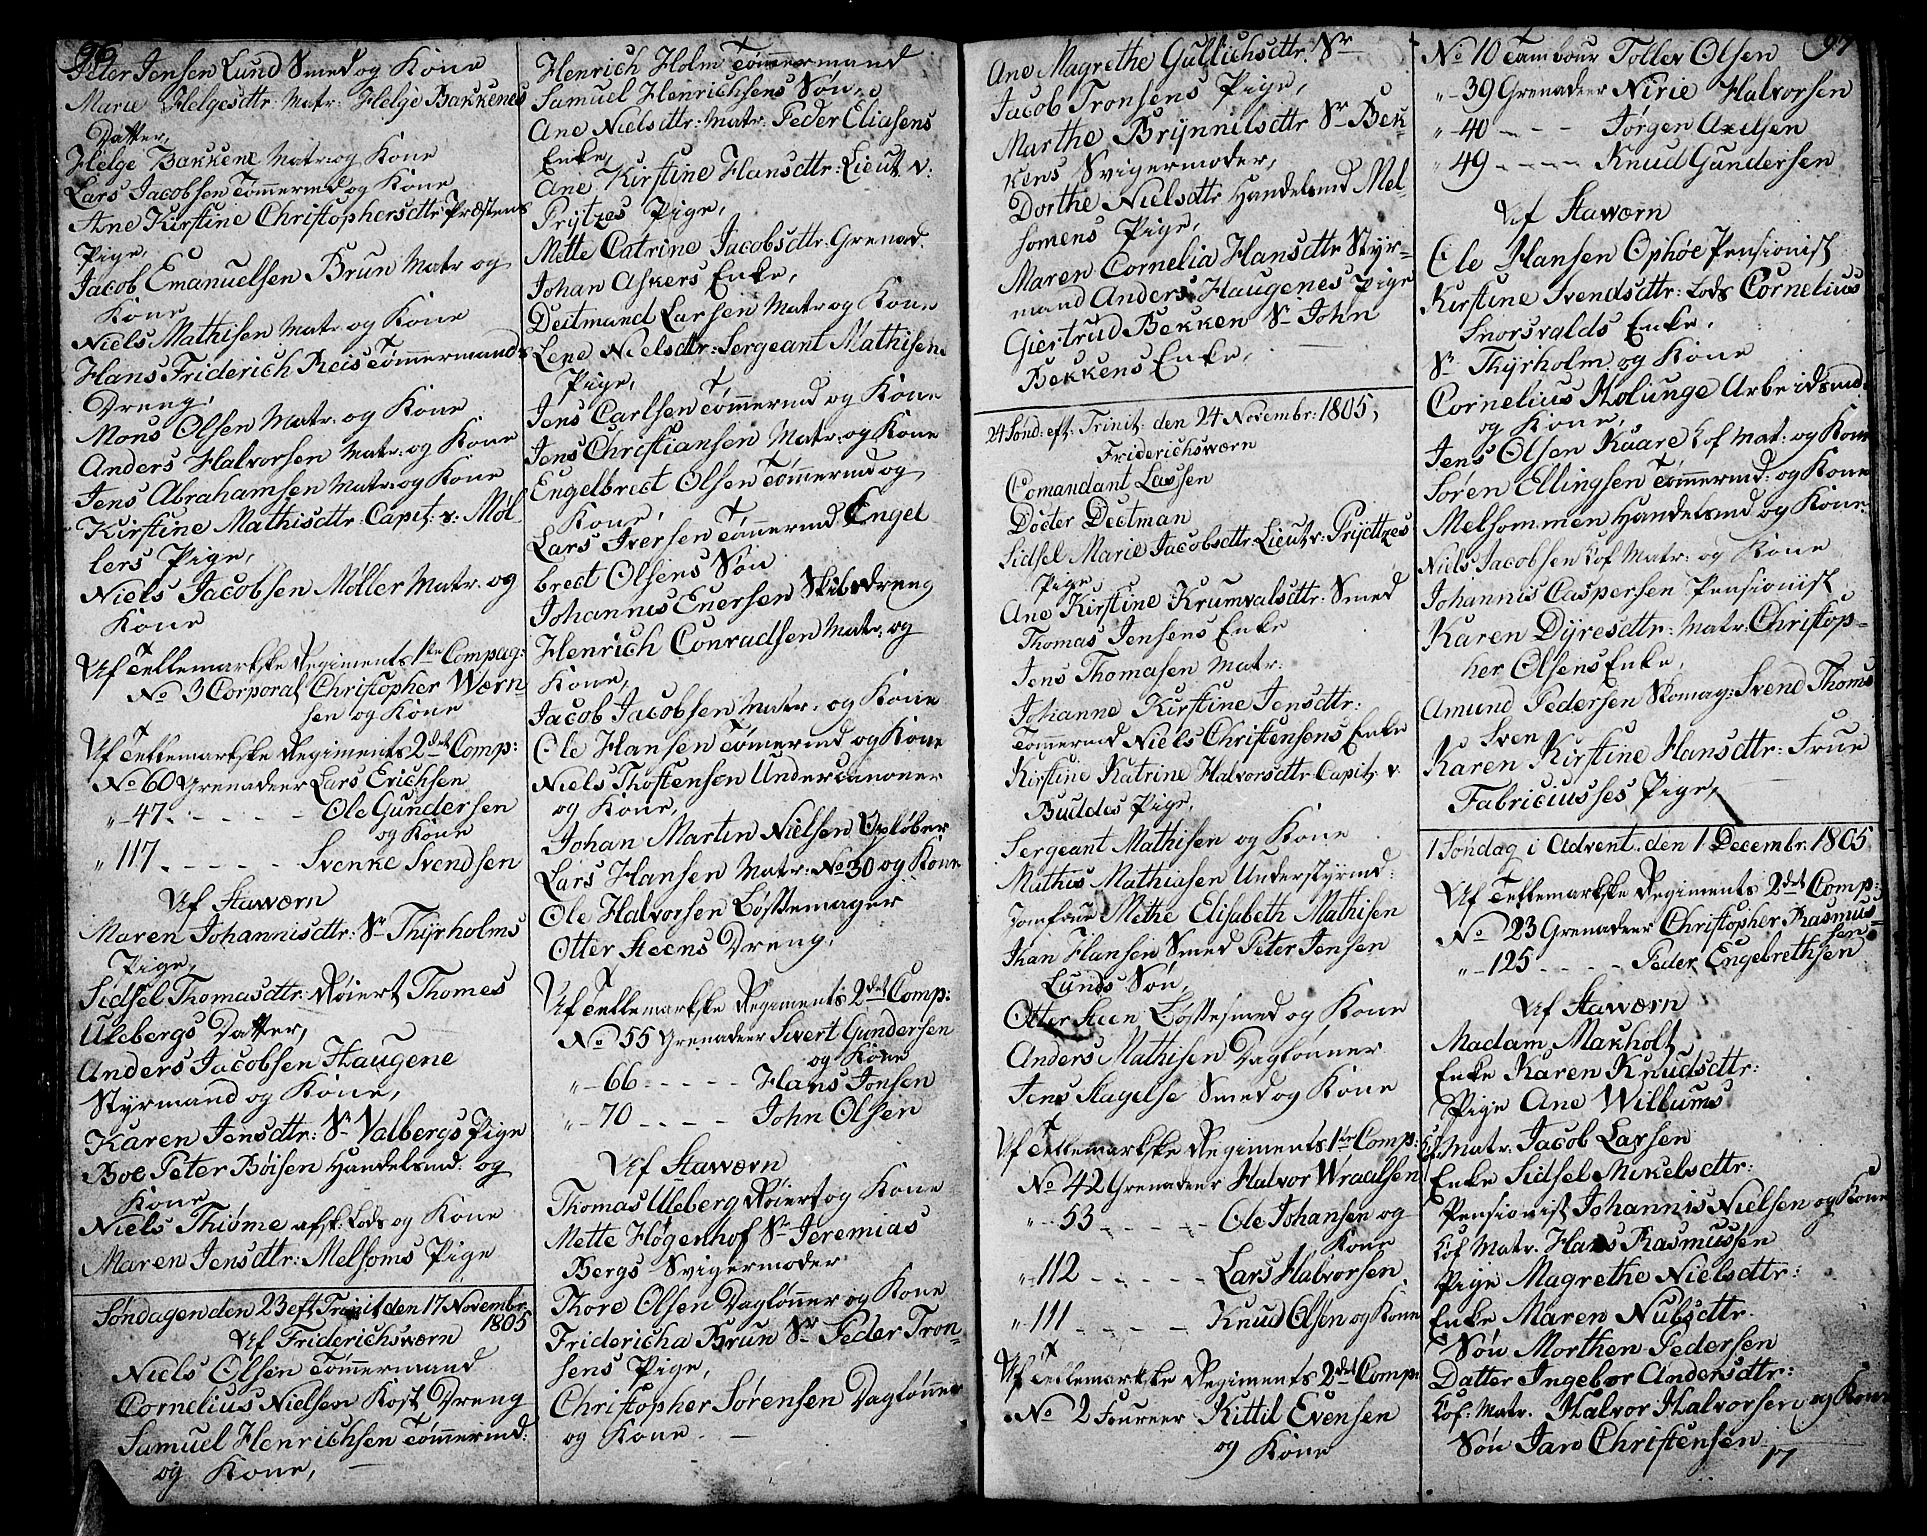 96
Peter Jensen Lund Smed og Kone
Marie Helgesdtr: Matr: Helge Bakkenes
Datter,
Helge Bakkene Matr: og Kone
Lars Jacobsen Tömermd og Kone
Ane Kirstine Christophersdtr: Præstens
Pige,
Jacob Emanuelsen Brun Matr og
Kone
Niels Mathisen Matr: og Kone
Hans Friderich Reis Tömmermands
Dreng,
Mons Olsen Matr: og Kone
Anders Halvorsen Matr: og Kone
Jens Abrahamsen Matr: og Kone
Kirstine Mathisdtr: Capit: v: Möl
lers Pige,
Niels Jacobsen Möller Matr: og
Kone
Af Tellemarkske Regiments 1ste Compag:
No 3 Corporal Christopher Wærn
sen og Kone
Af Tellemarkske Regiments 2det Comp:
No 60 Grenadeer Lars Erichsen
" 47 - - - - Ole Gundersen
og Kone
" 117 - - - - Svenke Svendsen
Af Staværn
Maren Johannisdtr: Sr Thyrholms
Pige,
Sidsel Thomasdtr: Röiert Thomes
Ulebergs Datter,
Anders Jacobsen Haugene
Styrmand og Kone,
Karen Jensdtr: Sr Valbergs Pige
Boe Peter Böisen Handelsmd: og
Kone
Niels Thiöme afsk: Lods og Kone
Maren Jensdtr: Melsoms Pige
Søndagen den 23 eft Trinit den 17 Novembr
1805
Af Friderichsværn
Niels Olsen Tömmermand
Cornelius Nielsen Kost Dreng
Samuel Henrichsen Tömmermd:
og Kone,
Henrich Holm Tömmermand
Samuel Henrichsens Sön,
Ane Nielsdtr: Matr: Peder Eliasens
Enke,
Ane Kirstine Hansdtr: Lieut v:
Prytzes Pige,
Mette Catrine Jacobsdtr: Grenad.
Johan Askers Enke,
Deitmand Larsen Matr og Kone
Lene Nielsdtr: Sergeant Mathisens
Pige,
Jens Carlsen Tömmermd og Kone
Jens Christiansen Matr: og Kone
Engelbrect Olsen Tömmermd og
Kone,
Lars Iversen Tömmermd Engel
brect Olsens Sön
Johannis Enersen Skibsdreng
Henrich Conradsen Matr: og
Kone,
Jacob Jacobsen Matr: og Kone
Ole Hansen Tömermd og Kone
Niels Thostensen Undercanoneer
og Kone,
Johan Martin Nielsen Oplöber
Lars Hansen Matr: No 30 og Kone
Ole Halvorsen Bössemager
Otter Steens Dreng,
Af Tellemarkske Regiments 2det Comp:
No 55 Grenadeer Sivert Gundersen
og Kone
" 66 - - - - Hans Jonsen
" 70 - - - - John Olsen
Af Staværn
Thomas Uleberg Röiert og Kone
Mette Högenhof Sr Jeremias
Bergs Svigermoder
Thore Olsen Daglönner og Kone
Fridericha Brun Sr Peder Tron-
sens Pige,
Christopher Sörensen Daglönner
og Kone
Ane Magrethe Gullichsdtr: Sr
Jacob Tronsens Pige,
Marthe Brynnilsdtr Sr Bek-
kens Svigermoder,
Dorthe Nielsdtr Handelsmd Mel-
somens Pige,
Maren Cornelia Hansdtr Styr-
mand Anders Haugenes Pige
Giertrud Bekken Sr John
Bekkens Enke,
24 Sönd: eft: Trinit: den 24 Novembr: 1805,
Friderichsværn
Comandant Lassen
Docter Deetman
Sidsel Marie Jacobsdtr Lieut v: Prydtzes
Pige
Ane Kirstine Krumvalsdtr: Smed
Thomas Jensens Enke
Jens Thomasen Matr:
Johanne Kirstine Jensdtr:
Tömmermd Niels Christensens Enke
Kirstine Katrine Halvorsdtr: Capit: v:
Buddes Pige,
Sergeant Mathisen og Kone
Mathis Mathiasen Understyrmd:
Jomfrue Methe Elisabeth Mathisen
Johan Hansen Smed Peter Jensen
Lunds Sön,
Otter Steen Bössesmed og Kone
Anders Mathisen Daglönner
Jens Slagelse Smed og Kone
Af Tellemarkske Regiments 1ste Comp:
No 42 Grenadeer Halvor Wraalsen
" 53 - - - - Ole Johansen og
Kone
" 112 - - - - Lars Halvorsen
" 111 - - - - Knud Olsen og Kone
Af Tellemarkske Regiments 2det Comp:
No 2 Foureer Kittil Evensen
og Kone
97
No 10 Tambour Tollev Olsen
" 39 Grenadeer Nirie Halvorsen
" 40 - - - Jörgen Axelsen
" 49 - - - Knud Gundersen
Af Staværn
Ole Hansen Ophöe Pensionist
Kirstine Svendsdtr: Lods Cornelius
Snorsvalds Enke,
Sr Thyrholm og Kone
Cornelius Holunge Arbeidsmd.
og Kone,
Jens Olsen Kaare Kof Mat: og Kone
Sören Ellingsen Tömmermd: og Kone
Melsommen Handelsmd og Kone
Niels Jacobsen Kof Matr: og Kone
Johannis Caspersen Pensionist
Karen Dyresdtr: Matr: Christop-
her Olsens Enke,
Amund Pedersen Skomag: Svend Thoms
Sven
Karen Kirstine Hansdtr: Frue
Fabriciusses Pige,
1 Söndag i Advent den 1 Decembr. 1805
Af Tellemarkske Regiments 2det Comp:
No 23 Grenadeer Christopher Rasmus-
sen
" 125 - - - Peder Engebrethsen
Af Staværn
Madam Maxholt
Enke Karen Knudsdtr:
Pige Ane Willums
Kof: Matr: Jacob Larsen
Enke Sidsel Mikelsdtr:
Pensionist Johannis Nielsen og Kone
Kof Matr. Hans Rasmussen
Pige Magrethe Nielsdtr:
Enke Maren Nubsdtr.
Sön Morthen Pedersen
Datter Ingebor Andersdtr:
Kof: Matr. Halvor Halvorsen og Kone
Sön Jaro Christensen
17